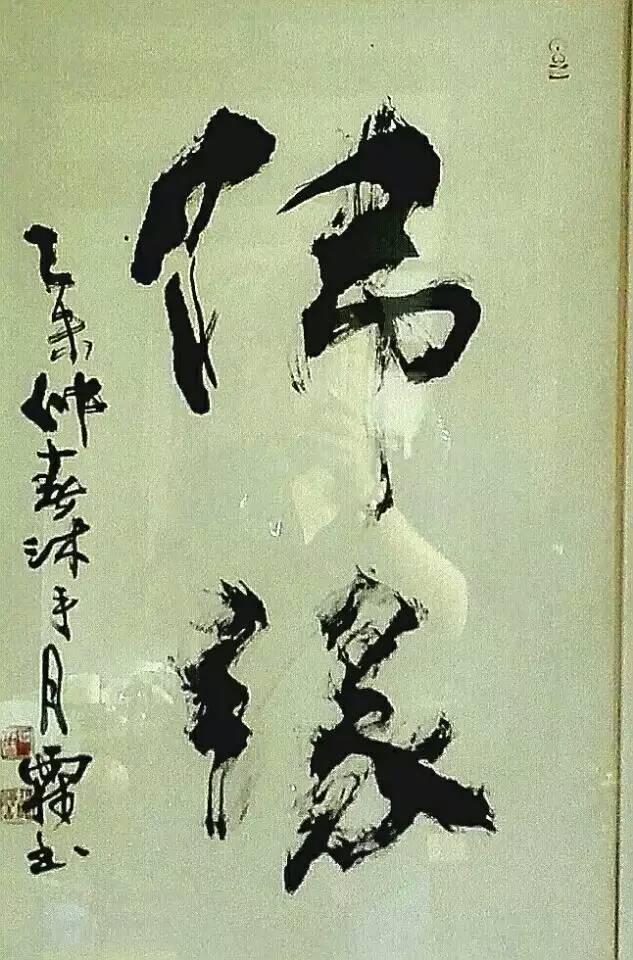 佛緣
乙未仲春沐手月霖书